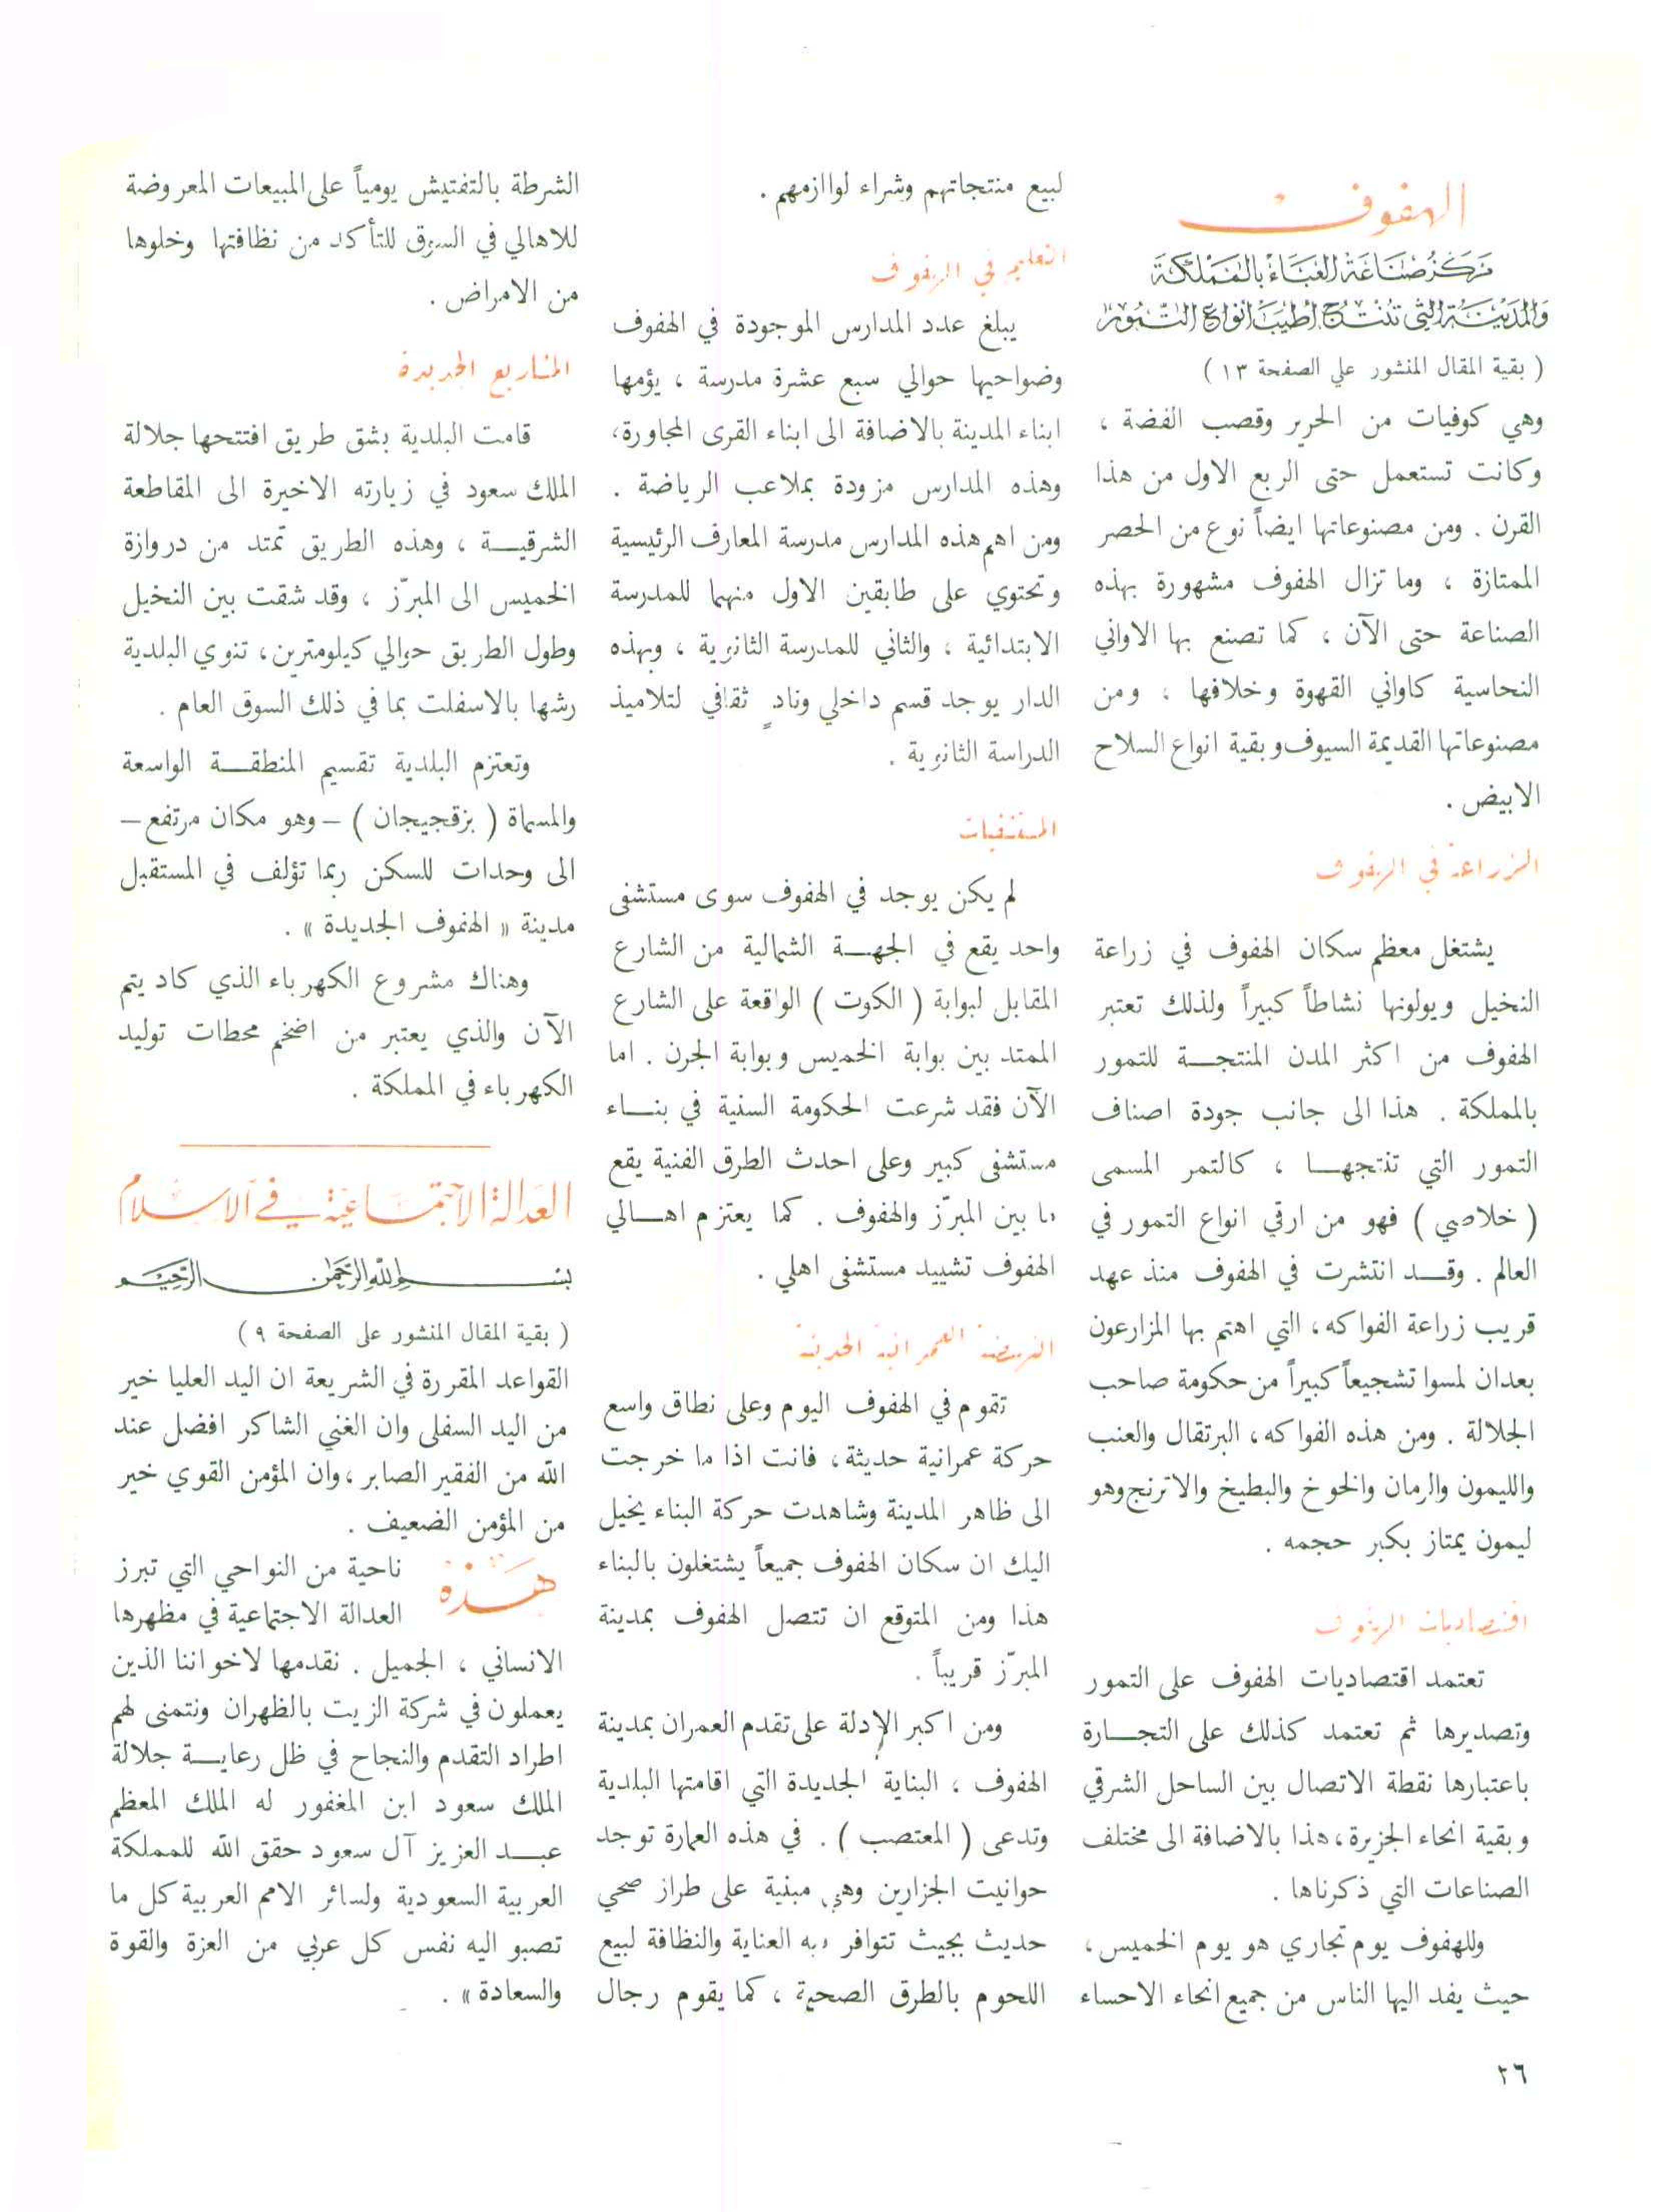 الهفوف
مركز صناعة العباء بالمملكة
والمدينة التي تنتج أطيب أنواع التمور
( بقية المقال المنشور علي الصفحة ١٣ )
وهي كوفيات من الحرير وقصب الفضة ،
وكانت تستعمل حتى الربع الاول من هذا
القرن . ومن مصنوعاتها ايضاً نوع من الحصر
الممتازة ، وما تزال الهفوف مشهورة بهذه
الصناعة حتى الآن ، كما تصنع بها الاواني
النحاسية كاواني القهوة وخلافها ، ومن
مصنوعاتها القديمة السيوف وبقية انواع السلاح
الابيض .
الزراعة في الهفوف
يشتغل معظم سكان الهفوف في زراعة
النخيل ويولونها نشاطاً كبيراً ولذلك تعتبر
الهفوف من اكثر المدن المنتجة للتمور
بالمملكة . هذا الى جانب جودة اصناف
التمور التي تنتجها ، كالتمر المسمى
( خلاصي ) فهو من ارقي انواع التمور في
العالم . وقد انتشرت في الهفوف منذ عهد
قريب زراعة الفواكه ، التي اهتم بها المزارعون
بعدان لمسوا تشجيعاً كبيراً من حكومة صاحب
الجلالة . ومن هذه الفواكه ، البرتقال والعنب
والليمون والرمان والخوخ والبطيخ والاترنج وهو
ليمون يمتاز بكبر حجمه .
اقتصاديات الهفوف
تعتمد اقتصاديات الهفوف على التمور
وتصديرها ثم تعتمد كذلك على التجارة
باعتبارها نقطة الاتصال بين الساحل الشرقي
وبقية انحاء الجزيرة ، هذا بالاضافة الى مختلف
الصناعات التي ذكرناها .
وللهفوف يوم تجاري هو يوم الخميس ،
حيث يفد اليها الناس من جميع انحاء الاحساء
لبيع منتجاتهم وشراء لواازمهم .
التعليم في الهفوف
يبلغ عدد المدارس الموجودة في الهفوف
وضواحيها حوالي سبع عشرة مدرسة ، يؤمها
ابناء المدينة بالاضافة الى ابناء القرى المجاورة ،
وهذه المدارس مزودة بملاعب الرياضة .
ومن اهم هذه المدارس مدرسة المعارف الرئيسية
وتحتوي على طابقين الاول منهما للمدرسة
الابتدائية ، والثاني للمدرسة الثانوية ، وبهذه
الدار يوجد قسم داخلي ونادٍ ثقافي لتلاميذ
الدراسة الثانوية .
المستشفيات
لم يكن يوجد في الهفوف سوى مستشفى
واحد يقع في الجهة الشمالية من الشارع
المقابل لبوابة ( الكوت ) الواقعة على الشارع
الممتد بين بوابة الخميس وبوابة الجرن . اما
الآن فقد شرعت الحكومة السنية في بناء
مستشفى كبير وعلى احدث الطرق الفنية يقع
ما بين المبرّز والهفوف . كما يعتزم اهالي
الهفوف تشييد مستشفى اهلي .
النهضة العمرانية الحديثة
تقوم في الهفوف اليوم وعلى نطاق واسع
حركة عمرانية حديثة ، فانت اذا ما خرجت
الى ظاهر المدينة وشاهدت حركة البناء يخيل
اليك ان سكان الهفوف جميعاً يشتغلون بالبناء
هذا ومن المتوقع ان تتصل الهفوف بمدينة
المبرّز قريباً .
ومن اكبر الادلة على تقدم العمران بمدينة
الهفوف ، البناية الجديدة التي اقامتها البلدية
وتدعى ( المعتصب ) . في هذه العمارة توجد
حوانيت الجزارين وهي مبنية على طراز صحي
حديث بحيث تتوافر به العناية والنظافة لبيع
اللحوم بالطرق الصحية ، كما يقوم رجال
الشرطة بالتفتيش يومياً على المبيعات المعروضة
للاهالي في السوق للتأكد من نظافتها وخلوها
من الامراض .
المشاريع الجديدة
قامت البلدية بشق طريق افتتحها جلالة
الملك سعود في زيارته الاخيرة الى المقاطعة
الشرقية ، وهذه الطريق تمتد من دروازة
الخميس الى المبرّز ، وقد شقت بين النخيل
وطول الطريق حوالي كيلومترين ، تنوي البلدية
رشها بالاسفلت بما في ذلك السوق العام .
وتعتزم البلدية تقسيم المنطقة الواسعة
والمسماة ( بزقجيجان ) – وهو مكان مرتفع –
الى وحدات للسكن ربما تؤلف في المستقبل
مدينة « الهفوف الجديدة » .
وهناك مشروع الكهرباء الذي كاد يتم
الآن والذي يعتبر من اضخم محطات توليد
الكهرباء في المملكة .
العدالة الاجتماعية في الاسلام
بسم الله الرحمن الرحيم
( بقية المقال المنشور على الصفحة ٩ )
القواعد المقررة في الشريعة ان اليد العليا خير
من اليد السفلى وان الغني الشاكر افضل عند
الله من الفقير الصابر ، وان المؤمن القوي خير
من المؤمن الضعيف .
هذه ناحية من النواحي التي تبرز
العدالة الاجتماعية في مظهرها
الانساني ، الجميل . نقدمها لاخواننا الذين
يعملون في شركة الزيت بالظهران ونتمنى لهم
اطراد التقدم والنجاح في ظل رعاية جلالة
الملك سعود ابن المغفور له الملك المعظم
عبد العزيز آل سعود حقق الله للمملكة
العربية السعودية ولسائر الامم العربية كل ما
تصبو اليه نفس كل عربي من العزة والقوة
والسعادة » .
٢٦